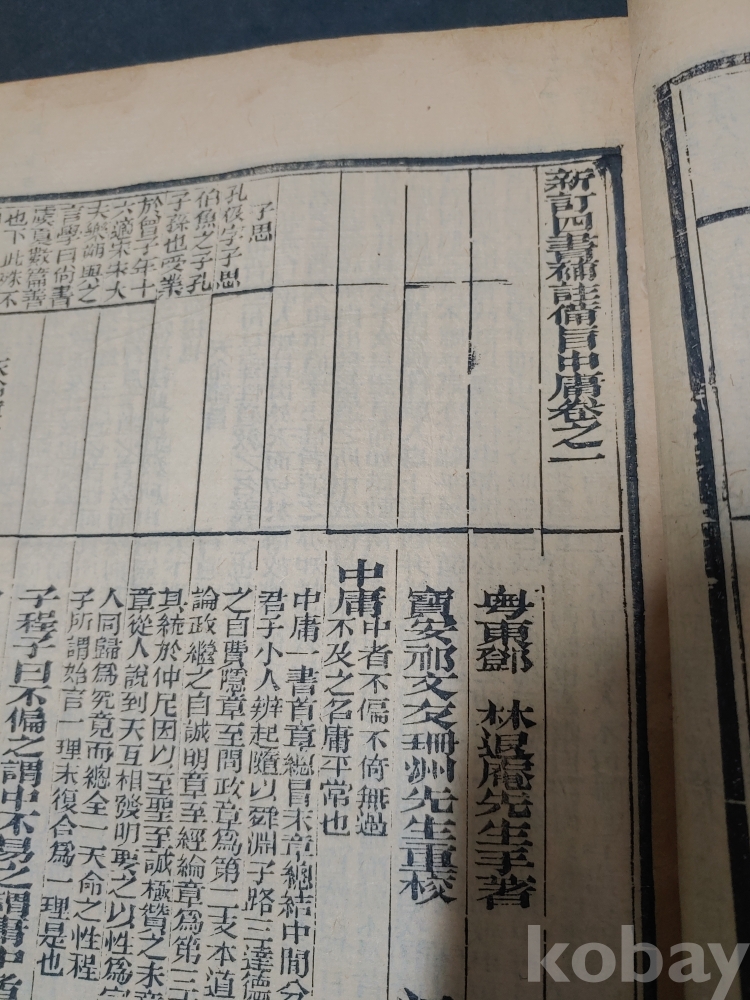 新訂四書補註備旨中庸卷之一
粤東鄧 林退庵先生手著
寶安祁文友珊洲先生重校
中庸
中者不偏不倚無過
不及之名庸平常也
中庸一書首章總冒末章總結中間分
君子小人辨起隨以舜淵子路三達德
之自費隱章至問政章爲第二支本道
論政繼之自誠明章至經綸章爲第三
其統於仲尼因以至聖至誠極贊之末章
章從人說到天互相發明要之以性爲
人同歸爲究竟而總全一天命之性程
子所謂始言一理末復合爲一理是也
子程子曰不偏之謂中不易之謂庸中者
子思
孔伋字子思
伯魚之子孔
子孫也受業
於曾子年十
六適宋宋大
夫樂朔與之
言學曰尚書
虞夏數篇善
也下此殊不
kobay